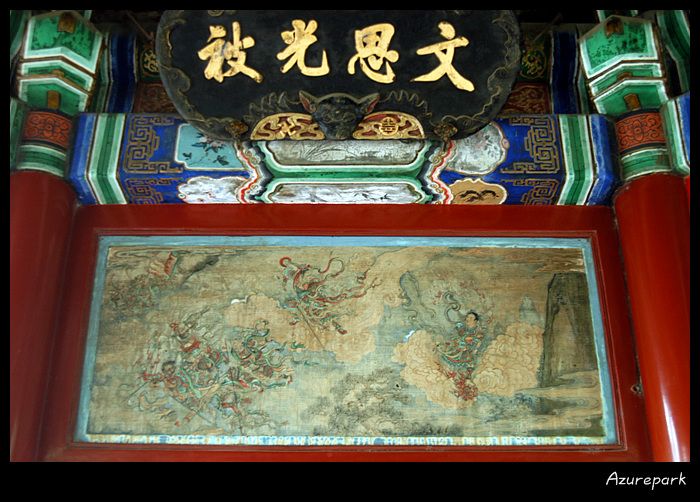 文思光被
Azurepark